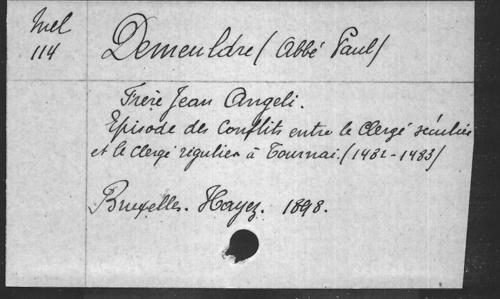 Mel
114
Demeuldre (Abbé Paul)
Frère Jean Angeli.
Episode des Conflits entre le Clergé séculier
et le Clergé régulier à Tournai. (1482-1483)
Bruxelles. Hayez. 1898.